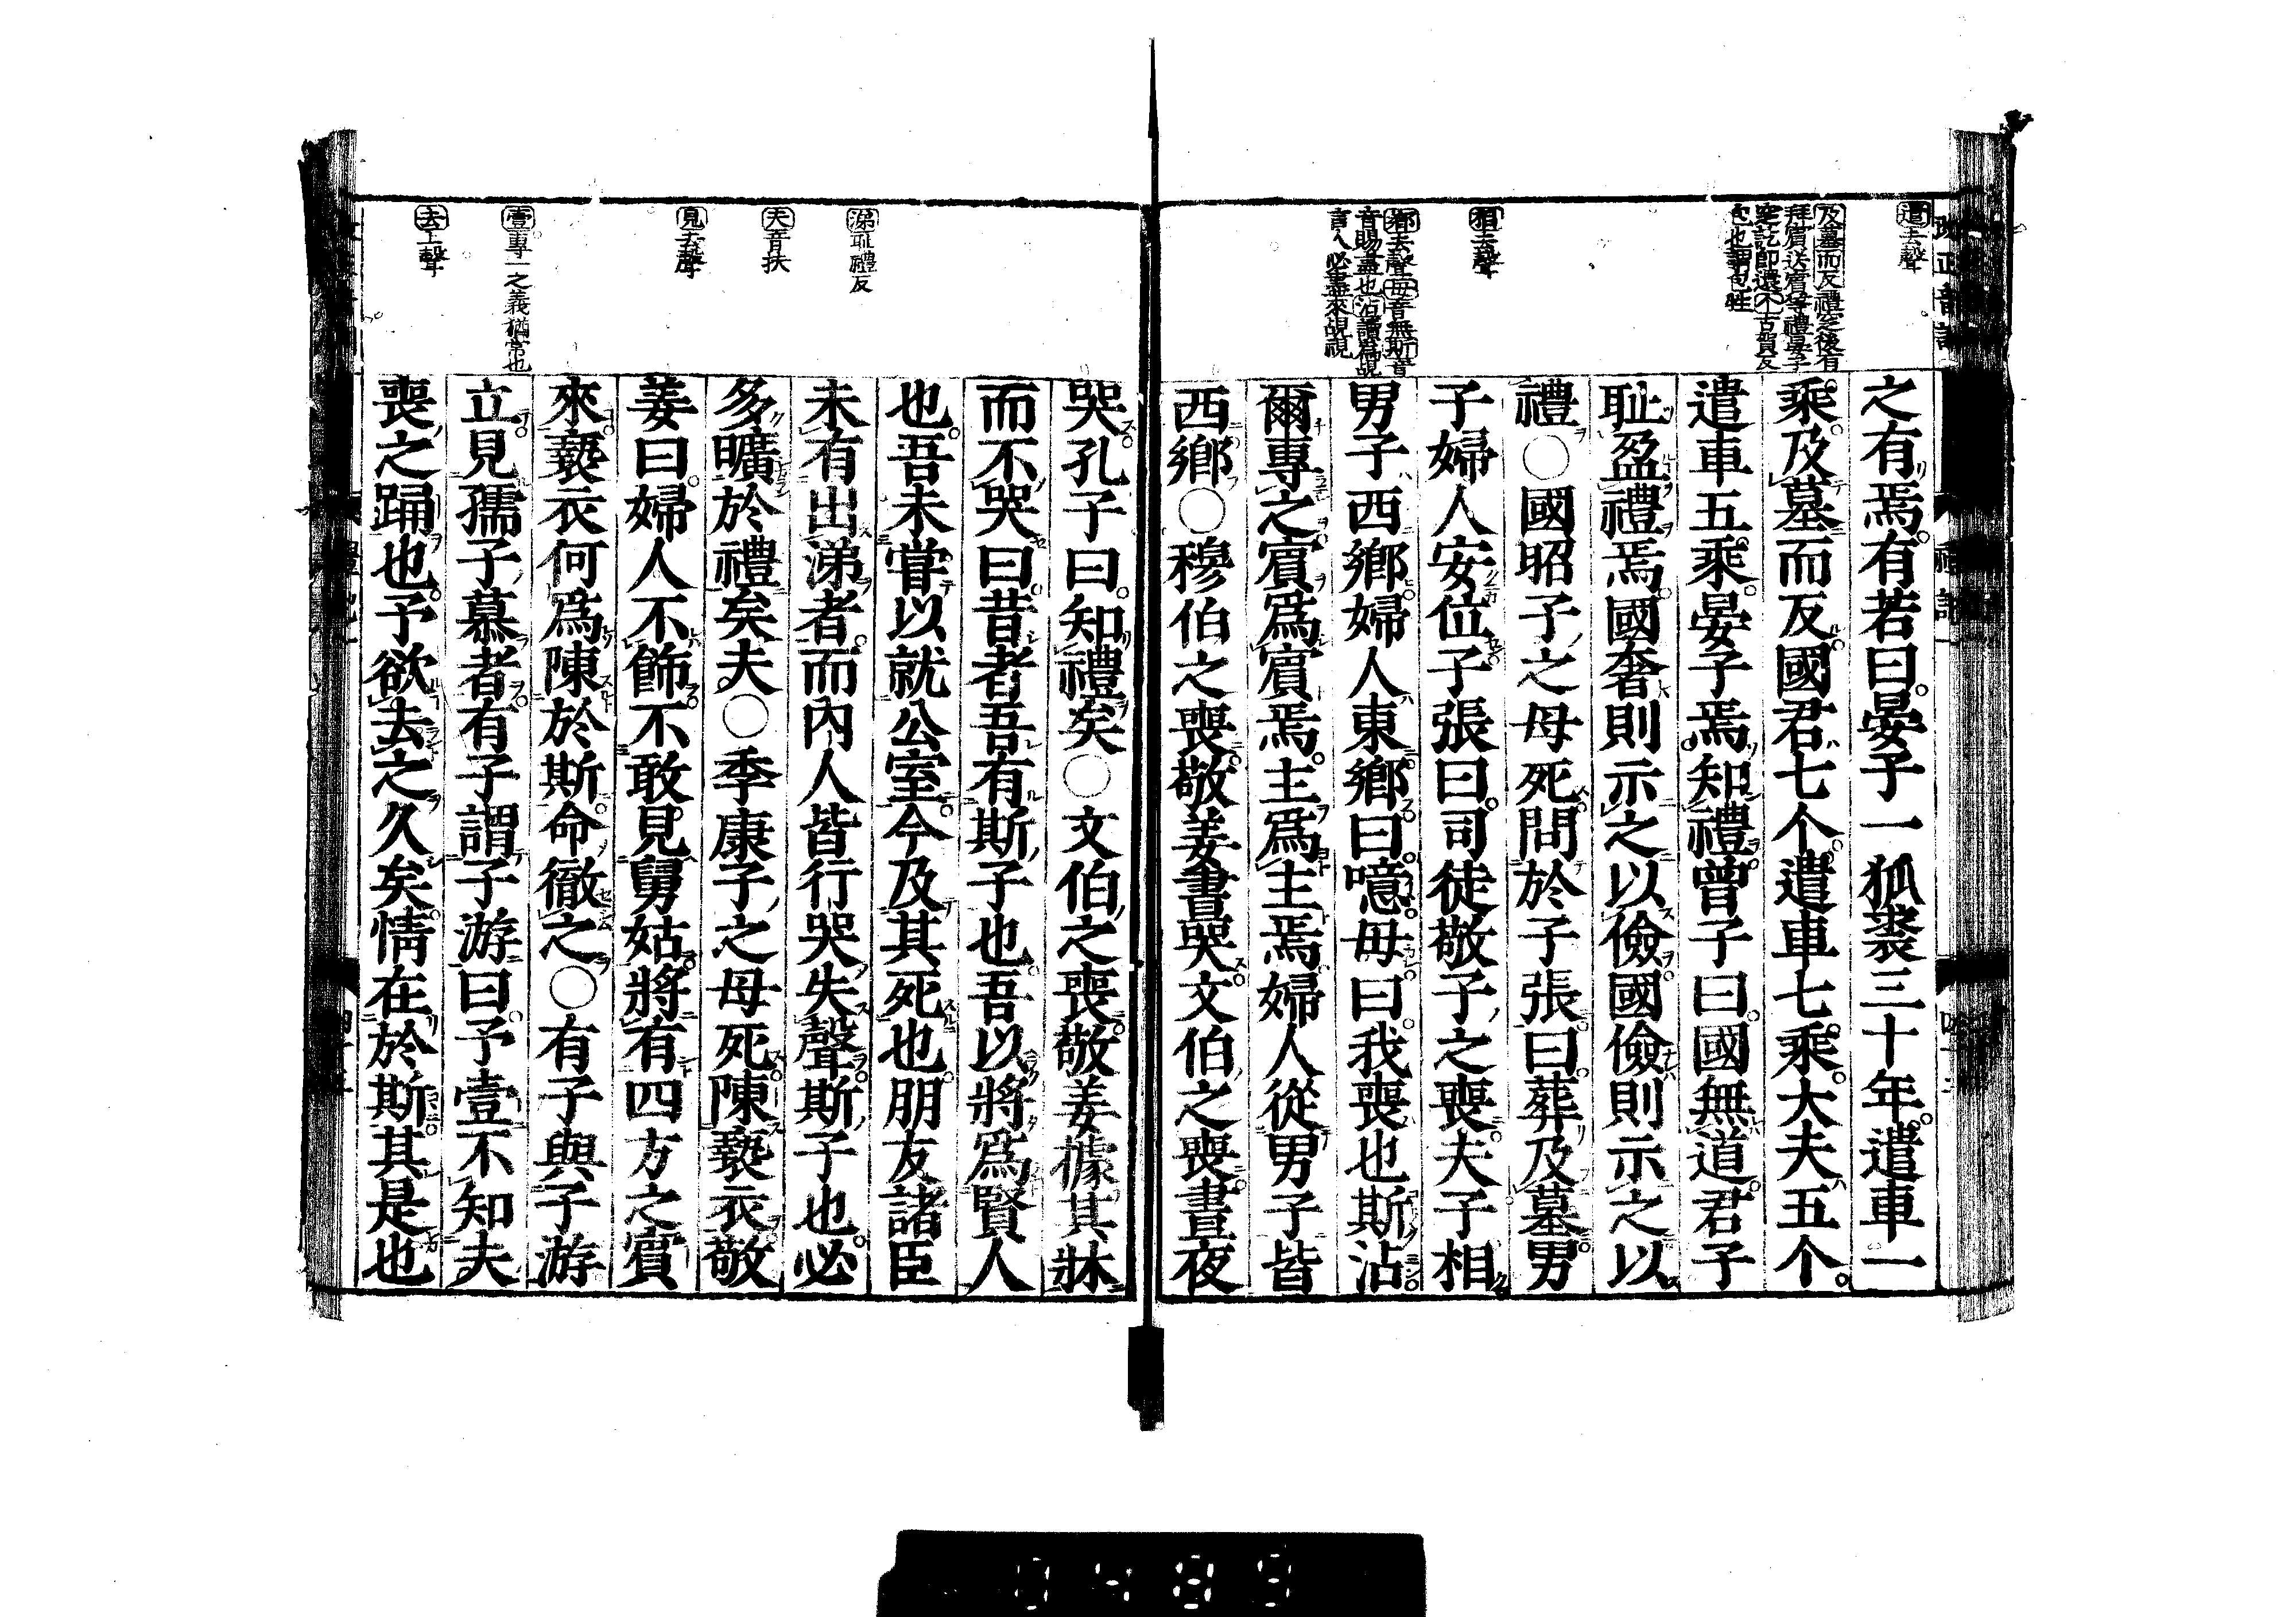 遣去聲
及墓而反禮窆後有
拜賓送賓等禮晏子
窆訖即還个古賀反
包也謂包牲
相去聲
鄉去聲毋音無斯音
音賜盡也沾讀爲覘
言人必盡來覘視
之有焉有若曰晏子一狐裘三十年遣車一
乘及墓而反國君七个遣車七乘大夫五个
遣車五乘晏子焉知禮曾子曰國無道君子
耻盈禮焉國奢則示之以儉國儉則示之以
禮○國昭子之母死問於子張曰葬及墓男
子婦人安位子張曰司徒敬子之喪夫子相
男子西鄉婦人東鄉曰噫毋曰我喪也斯沾
爾專之賓爲賓焉主爲主焉婦人從男子皆
西鄉○穆伯之喪敬姜晝哭文伯之喪晝夜
涕耻禮反
夫音扶
見去聲
壹專一之義猶常也
去上聲
哭孔子曰知禮矣○文伯之喪敬姜據其牀
而不哭曰昔者吾有斯子也吾以將爲賢人
也吾未嘗以就公室今及其死也朋友諸臣
未有出涕者而內人皆行哭失聲斯子也必
多曠於禮矣夫○季康子之母死陳褻衣敬
姜曰婦人不飾不敢見舅姑將有四方之賓
來褻衣何爲陳於斯命徹之○有子與子游
立見孺子慕者有子謂子游曰予壹不知夫
喪之踊也予欲去之久矣情在於斯其是也